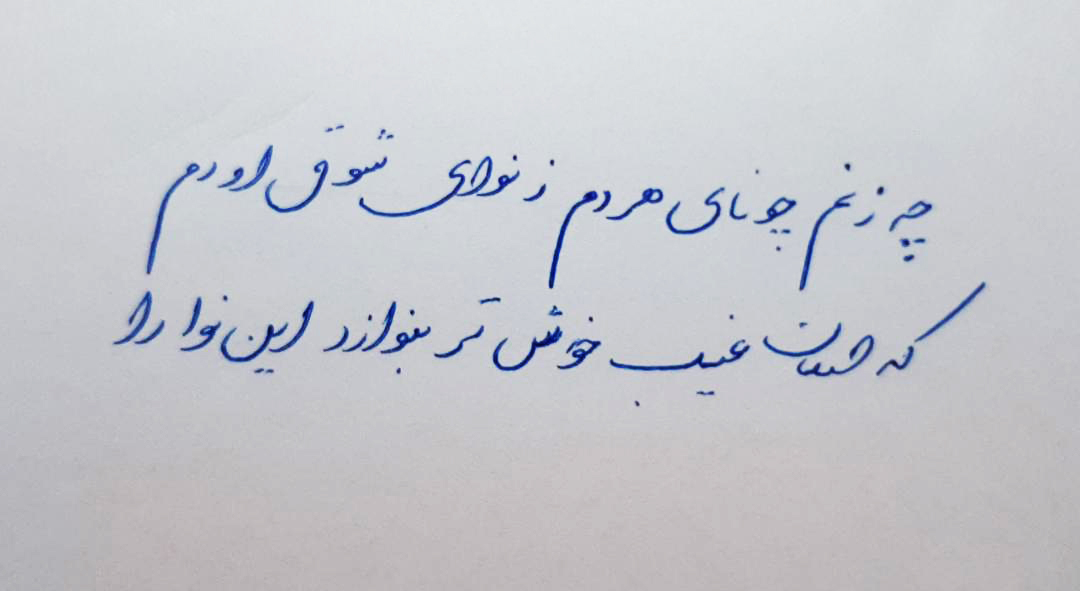 چه زنم چو نای هر دم ز نوای شوق او دم
که لسان غیب خوش تر بنوازد این نوا را